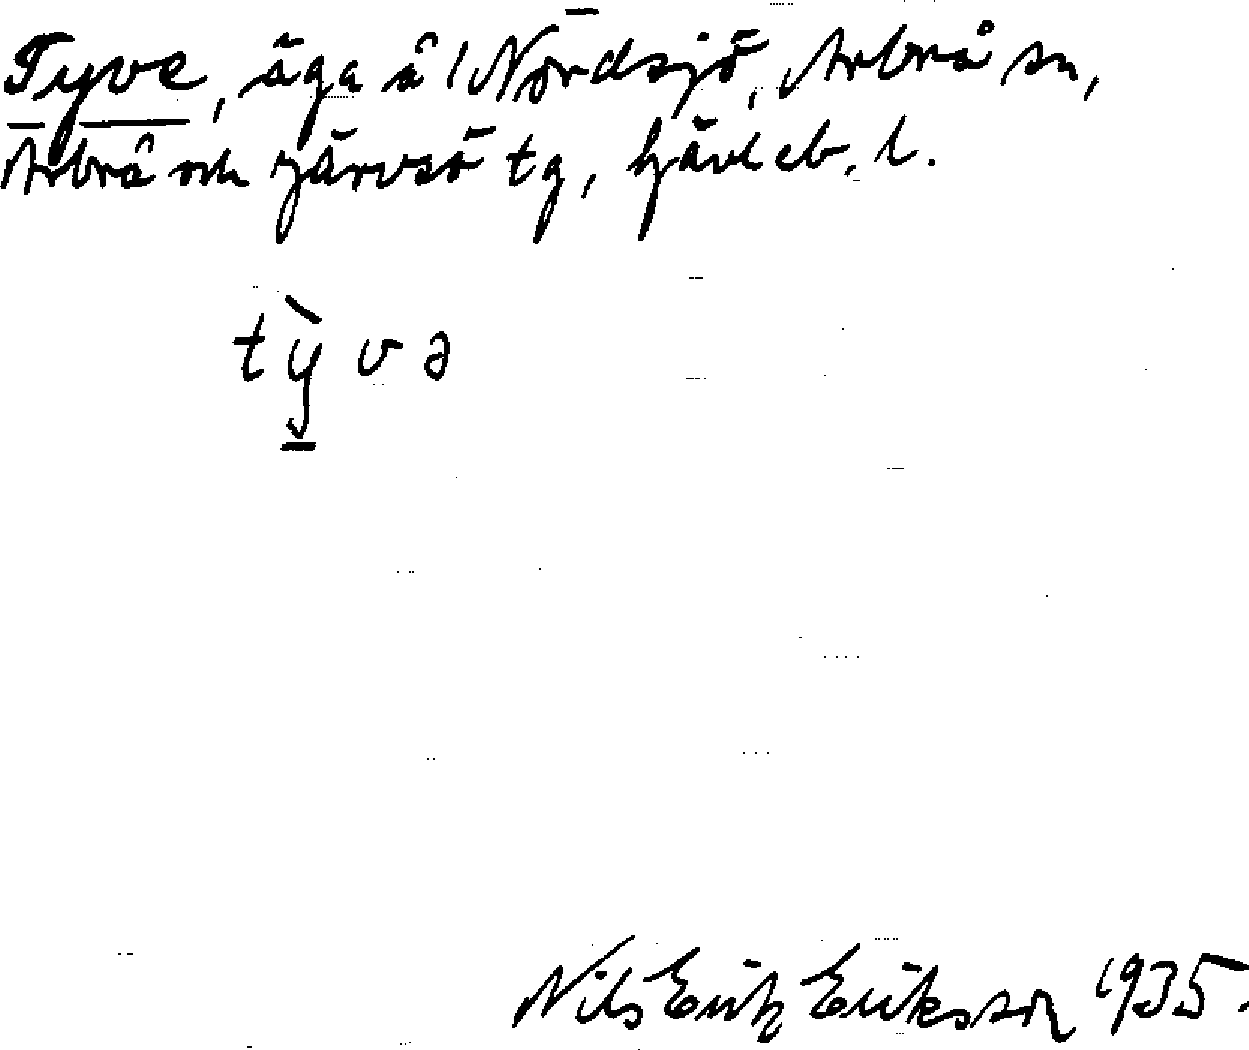 Tyve, äga å Nordsjö, Arbrå sn,
Arbrå och Järvsö tg, Gävleb. l.
tỳvə
Nils Erik Eriksson 1935.